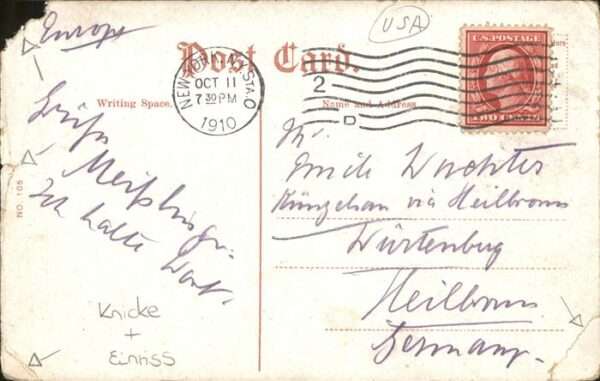 Europe
USA
Post Card.
NEW YORK, N.Y. STA. O
OCT 11
7 30 PM
1910
2
D
U.S. POSTAGE
Writing Space.
Name and Address
NO. 105
Ich halte Wort.
Emil Wachter
Künzelsau via Heilbronn
Würtenberg
Heilbronn
Germany.
Knicke
+
Einriss